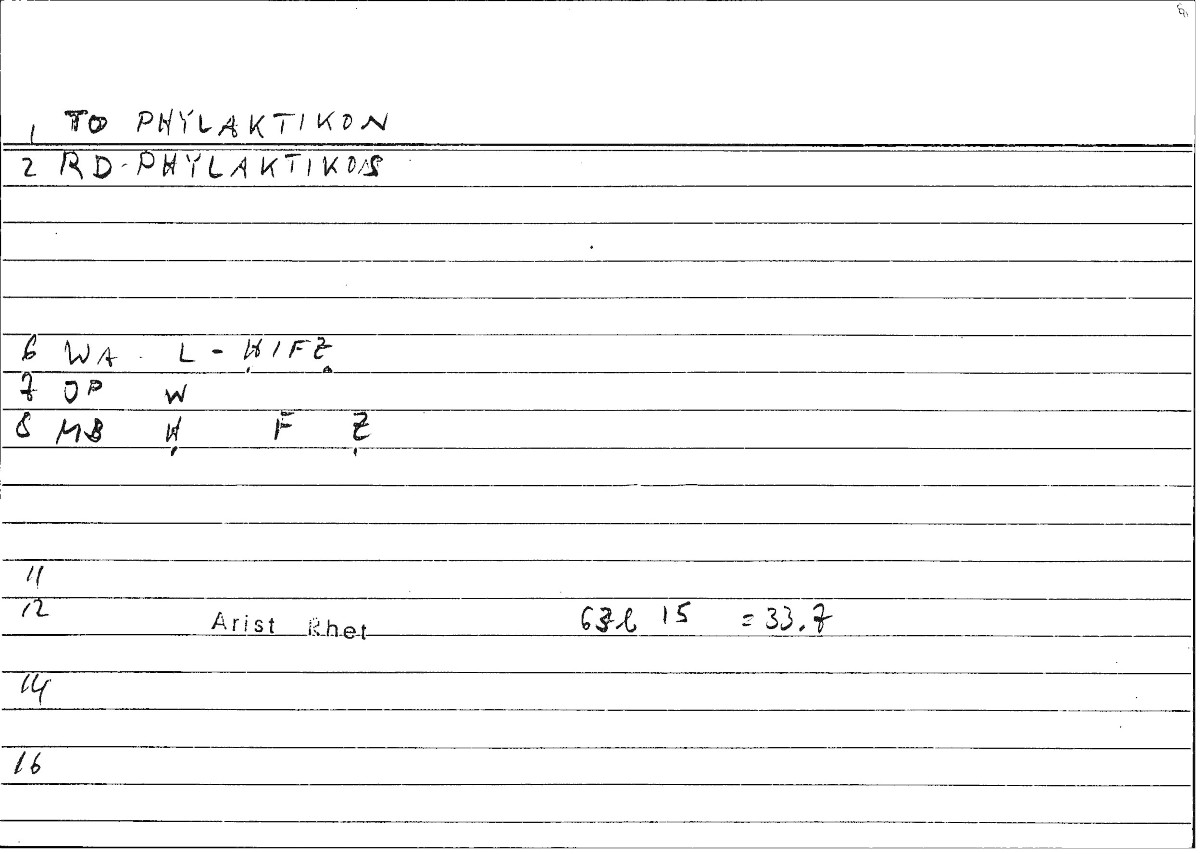 1 TO PHYLAKTIKON
2 RD-PHYLAKTIKOS
6 WA L-ḤIFẒ
7 OP W
8 MB Ḥ F Ẓ
11
12 Arist Rhet 15 =33.7
14
16